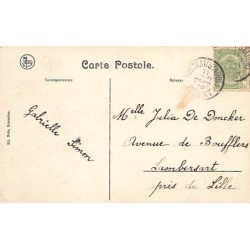 Carte Postale.
Correspondance
Adresse
Gabrielle
Simon
Melle Julia De Doncker
Avenue de Boufflers
Lambersart
près de Lille